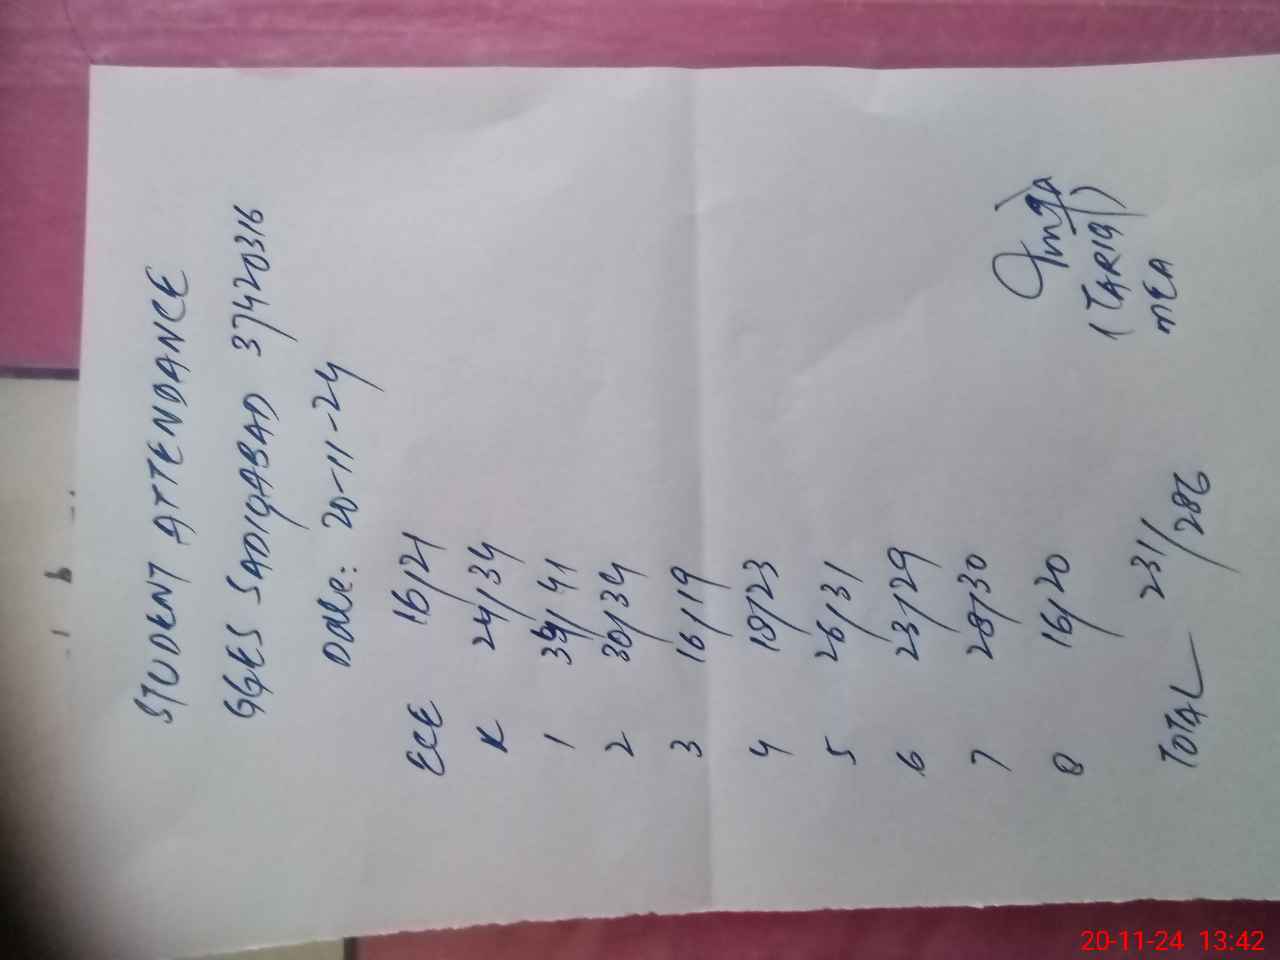 STUDENT ATTENDANCE
GGES SADIQABAD 37420316
Date: 20-11-24
ECE 16/21
K 24/34
1 34/41
2 30/34
3 16/19
4 18/23
5 26/31
6 23/29
7 28/30
8 16/20
TOTAL 231/286
(TARIQ)
MEA
20-11-24 13:42